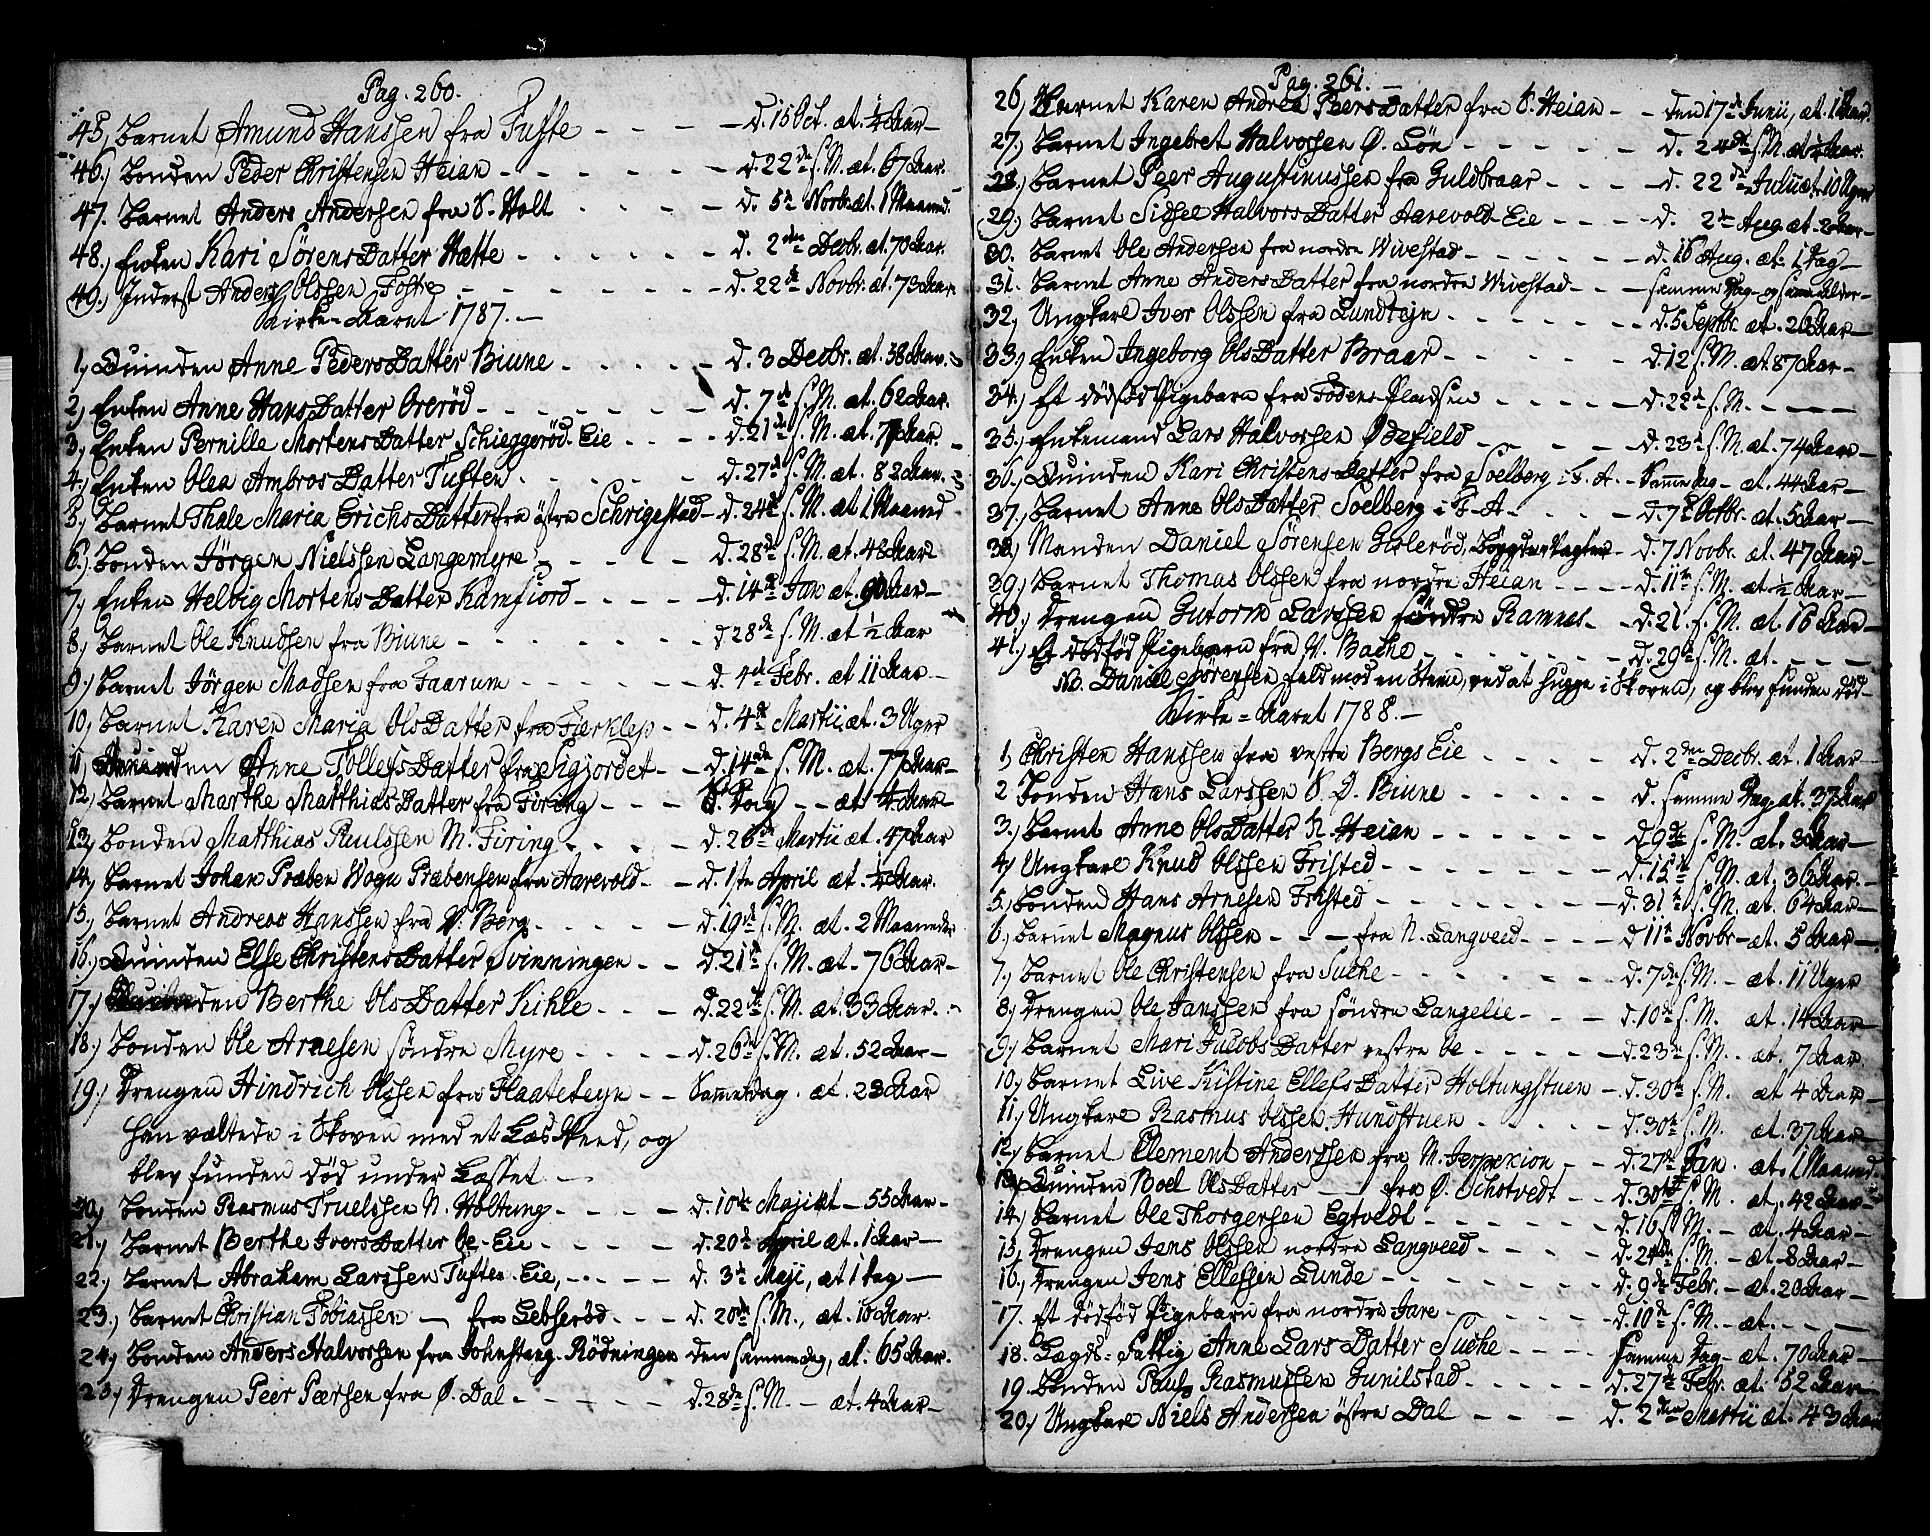 Pag. 260.
45.) Barnet Amund Hanssen fra Tufte - - - - d. 15 Oct. æt. ¼ Aar -
46.) Bonden Peder Christensen Heian - - - - d. 22de s. M. æt. 67 Aar.
47. Barnet Anders Andersen fra S. Holt - - - - d. 5te Novbr. æt. 1 Maaned.
48.) Enken Kari Sørens Datter Hætte - - - - d. 2den Decbr. æt. 70 Aar.
49.) Inderst Anders Olssen Foste - - - - d. 22de Novbr. æt. 73 Aar.
Kirke-Aaret 1787. -
1.) Quinden Anne Peders Datter Biune - - - - d. 3 Decbr. æt. 38 Aar.
2.) Enken Anne Hans Datter Orerød - - - - d. 7de s. M. æt. 62 Aar.
3.) Enken Pernille Mortens Datter Schieggerød-Eie - - - - d. 21de s. M. æt. 71 Aar. -
4.) Enken Olea Ambros Datter Tuften - - - - d. 27de s. M. æt. 82 Aar.
5.) Barnet Thale Maria Erichs Datter fra østre Schrigestad - d. 24de s. M. æt 1 Maaned
6.) Bonden Jørgen Nielssen Langemyre - - - - d. 28de s. M. æt. 48 Aar
7.) Enken Helvig Mortens Datter Kamfiord - - - - d. 14de Jan æt. 90 Aar -
8.) Barnet Ole Knudsen fra Biune - - - - d 28de s. M. æt ½ Aar
9.) Barnet Jørgen Madsen fra Faarum - - - - d. 4de Febr. æt 11 Aar -
10.) Barnet Karen Maria Ols Datter fra Fierklep - - d. 4de Martii æt. 3 Uger
11.) Quinden Anne Tollefs Datter fra Sigjordet - - d. 14de s. M. æt. 77 Aar -
12.) Barnet Marthe Matthias Datter fra Firing - - - S. Dag - - æt. 4 Aar -
13.) Bonden Matthias Paulssen M. Firing - - - d. 26de Martii æt. 47 Aar
14.) Barnet Johan Præben Wogn Præbensen fra Aarevold - - d. 1ste April æt. ¼ Aar.
15.) Barnet Andreas Hanssen fra V. Berg - - - - d. 19de s. M. æt. 2 Maaneder
16.) Quinden Else Christens Datter Svinningen - - d. 21de s. M. æt. 76 Aar -
17.) Quinden Berthe Ols Datter Kihle - - - d. 22de s. M. æt. 33 Aar. -
18.) Bonden Ole Arnesen søndre Myre - - - - d. 26de s. M. æt. 52 Aar -
19.) Drengen Hindrich Olssen fra Flaateteyn - - Samme Dag. æt. 23 Aar
han væltede i Skoven med et Læs Veed, og
blev funden død under Læsset. -
20.) Bonden Rasmus Truelssen N. Holtung - - - - d. 10de Maji æt - 55 Aar -
21.) Barnet Berthe Ivers Datter Oe-Eie - - - - d. 20de April æt. 1 Aar -
22.) Barnet Abraham Larssen Tufte-Eie, - - - - d. 3de Maji, æt 1 Dag -
23.) Barnet Christian Tobiassen - fra Lebserød - - - d. 20de s. M., æt. 10 Aar.
24.) Bonden Anders Halvorsen fra Johnstang-Rødningen den samme dag, æt. 65 Aar.
25.) Drengen Peer Pærsen fra Ø. Dal - - - - d. 28de s. M. - æt. 4 Aar -
Pag. 261. -
26.) Barnet Karen Andrea Peers Datter fra S. Heian - - den 17de Junii, æt. 1 Aar.
27.) Barnet Ingebret Halvorsen Ø. Løn - - - - d. 24de s. M. æt ½ Aar.
28.) Barnet Peer Augustinussen fra Guldbraar - - - - d. 22de Julii æt. 10 Uger
29.) Barnet Sidsel Halvors Datter Aarevold-Eie - - - - d. 2de Aug æt. 2 Aar -
30. Barnet Ole Andersen fra nordre Wivestad - - - - d. 16 Aug. æt. 1 Dag -
31. Barnet Anne Anders Datter fra nordre Wivestad - - - samme Dag - og samme Alder -
32.) Ungkarl Iver Olssen fra Lundteyn - - - - d. 5 Septbr. æt. 26 Aar -
33.) Enken Ingeborg Ols Datter Braar - - - - d. 12 s. M. æt. 87 Aar -
34.) Et dødfød Pigebarn fra Fodens Pladsen - - - - d. 22de s. M. - - - -
35.) Enkemand Lars Halvorsen Ødefield - - - - d. 23de s. M. æt. 74 Aar -
36.) Quinden Kari Christens Datter fra Soelberg i F. A. - Samme Dag - æt. 44 Aar -
37.) Barnet Anne Ols Datter Soelberg i F-A - - - - d. 7de Octbr. æt. 5 Aar -
38.) Manden Daniel Sørensen Gislerød, Bøygde-Vægter - d. 7 Novbr. æt. 47 Aar -
39.) Barnet Thomas Olssen fra nordre Heian - - - - d. 11te s. M. æt. ½ Aar -
40.) Drengen Gutorm Larssen søndre Ramnes - - d. 21. s. M. æt. 16 Aar -
41.) Et dødfød Pigebarn fra N. Backe - - - - d. 29de s. M. æt. - - - -
NB. Daniel Sørensen feld mod en Steen, ved at hugge i Skoven, og blev funden død -
Kirke=Aaret 1788. -
1.) Christen Hanssen fra vestre Bergs Eie - - - - d. 2den Decbr. æt. 1 Aar -
2 Bonden Hans Larssen S. Ø. Biune - - - - d. samme Dag, æt. 37 Aar
3.) Barnet Anne Ols Datter N. Heian - - - - d 9de s. M. æt. 3 Aar -
4.) Ungkarl Knud Olssen Fristed - - - - d. 15de s. M. æt. 36 Aar. -
5.) Bonden Hans Arnesen Fristed - - - - d. 31te s. M. æt. 64 Aar -
6.) Barnet Magnus Olssen - - - fra N. Langveed - - - d 11te Novbr - æt. 5 Aar -
7.) Barnet Ole Christensen fra Suche - - - - d. 7de s. M. - æt. 11 Uger
8.) Drengen Ole Janssen fra søndre Langelie - - - d. 10de s. M. æt. 14 Aar -
9.) Barnet Mari Jacobs Datter vestre Oe - - - - d. 23de s. M. - æt. 7 Aar
10.) Barnet Live Kistine Ellefs Datter Holtungstuen - d. 30te s. M. æt 4 Aar -
11.) Ungkarl Rasmus Olssen Hundstuen - - - - d. 30te s. M. æt. 37 Aar -
12.) Barnet Clement Anderssen fra N. Jerpekion - - d. 27de Jan. æt. 1 Maaned.
13.) Quinden Boel Ols Datter - fra Ø. Schotvedt - - d. 30te s. M. æt. 42 Aar -
14.) Barnet Ole Thorgersen Egtvedt - - - - d. 16 s. M. - æt. 4 Aar -
15.) Drengen Jens Olssen nordre Langveed - - - - d. 24de s. M. - æt. 8 Aar -
16.) Drengen Jens Ellefsen Lunde - - - - d. 9de Febr. - æt. 20 Aar -
17. Et dødfød Pigebarn fra nordre Jare - - - - d. 10de s. M. - æt. - - -
18. Lægds=Fattig Anne Lars Datter Suche - - - - Samme Dag - æt. 70 Aar -
19. Bonden Pauls Rasmussen Gunilstad - - - - d. 27de Febr. æt. 52 Aar -
20.) Ungkarl Niels Andersen østre Dal - - - - d. 2den Martii æt. 43 Aar